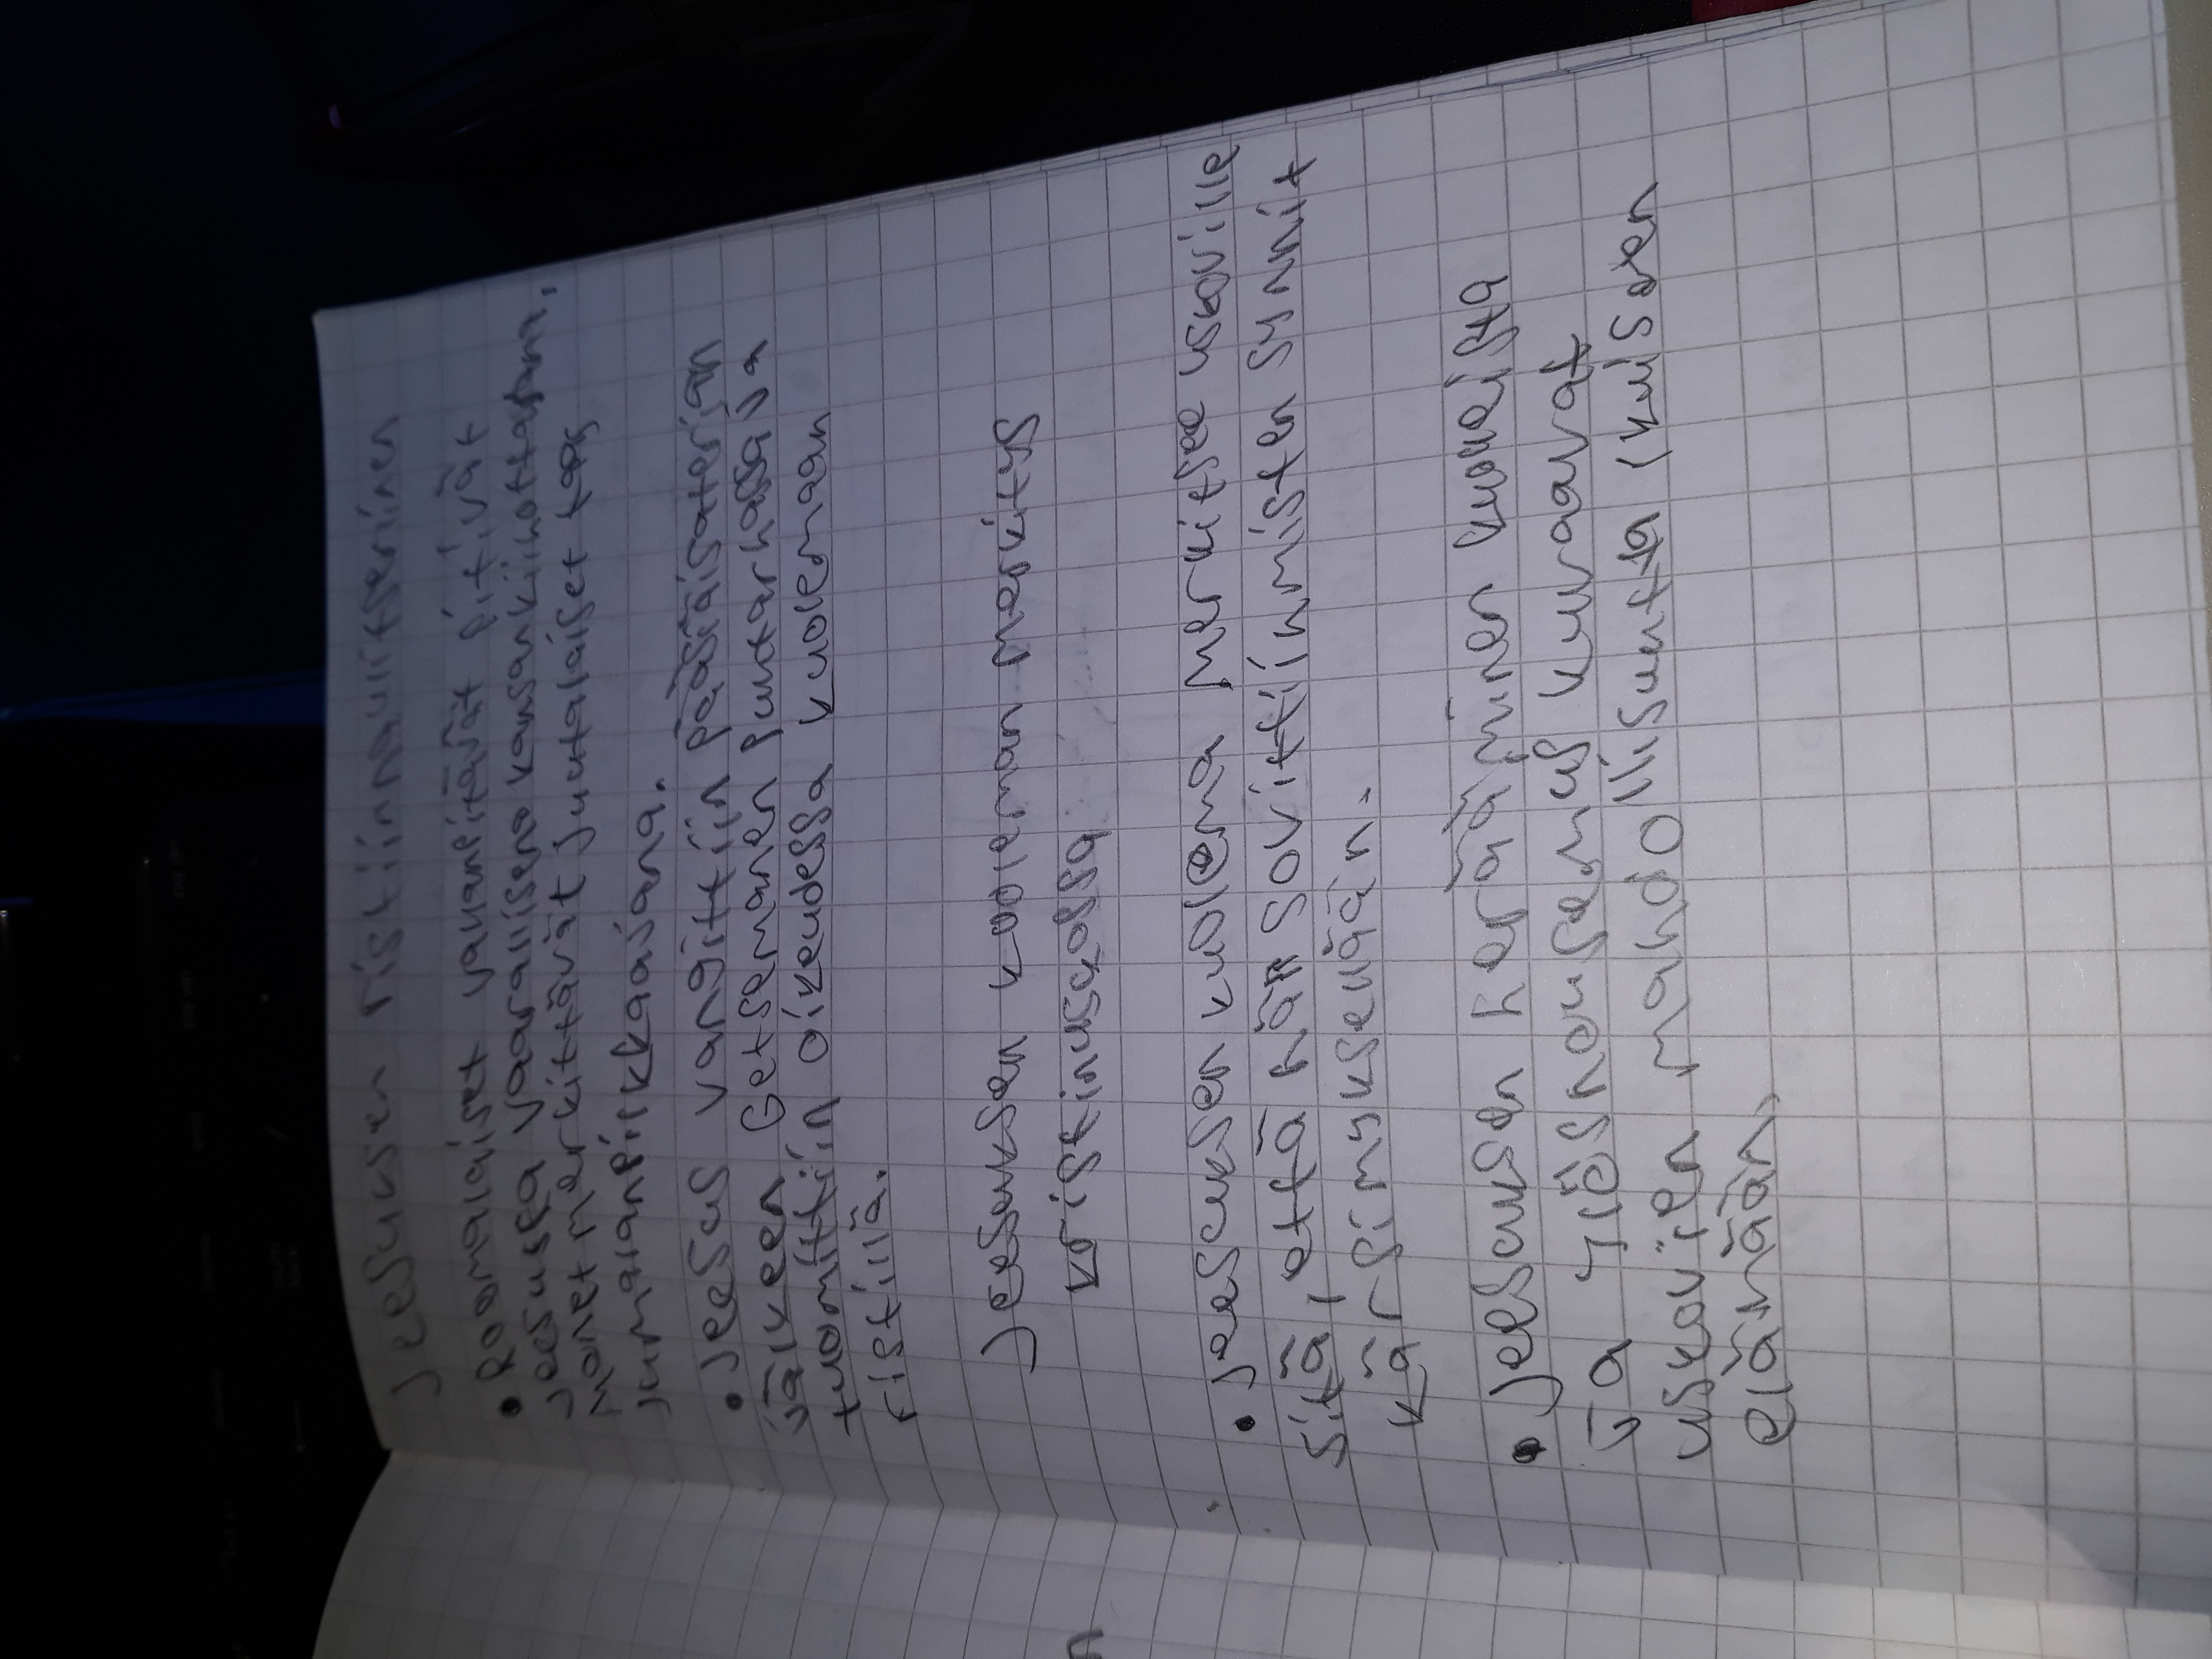 Jeesuksen ristiinnaulitseminen
• Roomalaiset vallanpitäjät pitivät
Jeesusta vaarallisena kansankiihottajana,
monet merkittävät juutalaiset taas
jumalanpilkkaajana.
• Jeesus vangittiin pääsiäisaterian
jälkeen Getsemanen puutarhassa ja
tuomittiin oikeudessa kuolemaan
ristillä.
Jeesuksen kuoleman merkitys
kristinuskossa
• Jeesuksen kuolema merkitsee uskoville
sitä, että hän sovitti ihmisten synnit
kärsimyksellään.
• Jeesuksen herääminen kuolleista
ja ylösnousemus kuvaavat
uskovien mahdollisuutta ikuiseen
elämään.